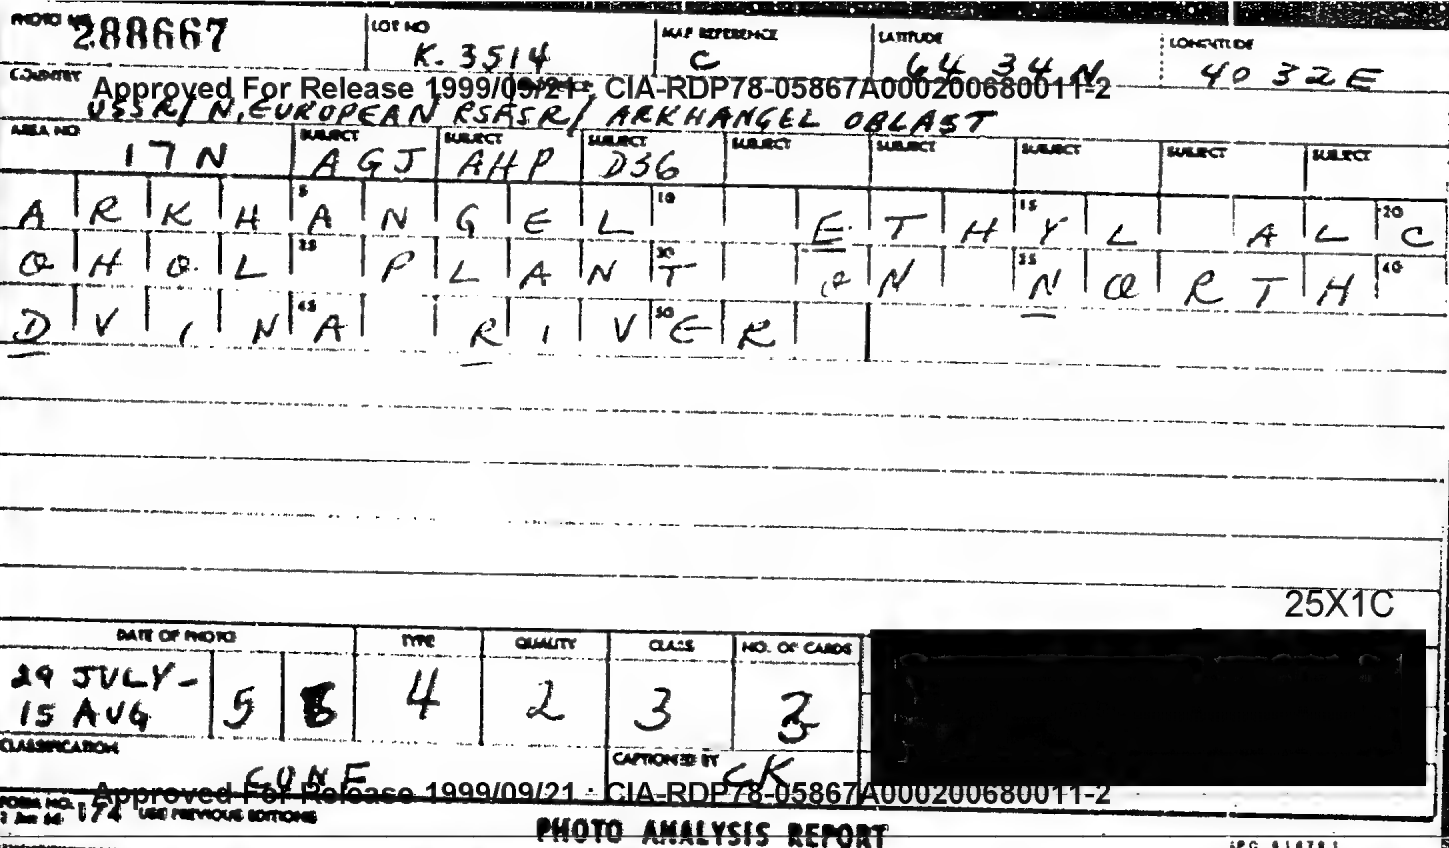 PHOTO NO. 288667 LOT NO K. 3514 MAP REFERENCE C LATITUDE 64 34 N LONGITUDE 40 32 E
COUNTRY Approved For Release 1999/09/21 : CIA-RDP78-05867A000200680011-2
USSR/ N. EUROPEAN RSFSR/ ARKHANGEL OBLAST
AREA NO 17N SUBJECT AGJ SUBJECT AHP SUBJECT D36 SUBJECT SUBJECT SUBJECT SUBJECT SUBJECT
ARKHANGEL ETHYL ALC
OHOL PLANT ON NORTH
DVINA RIVER
25X1C
DATE OF PHOTO TYPE QUALITY CLASS NO. OF CARDS
29 JULY- 15 AUG 5 4 2 3
CLASSIFICATION CAPTIONED BY CK
Approved For Release 1999/09/21 : CIA-RDP78-05867A000200680011-2
FORM NO. 174 USE PREVIOUS EDITIONS
PHOTO ANALYSIS REPORT